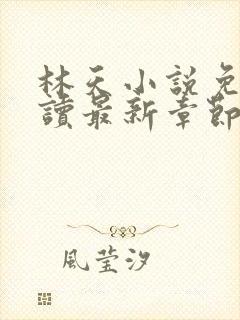 林天小說免
讀最新章節
風莹汐